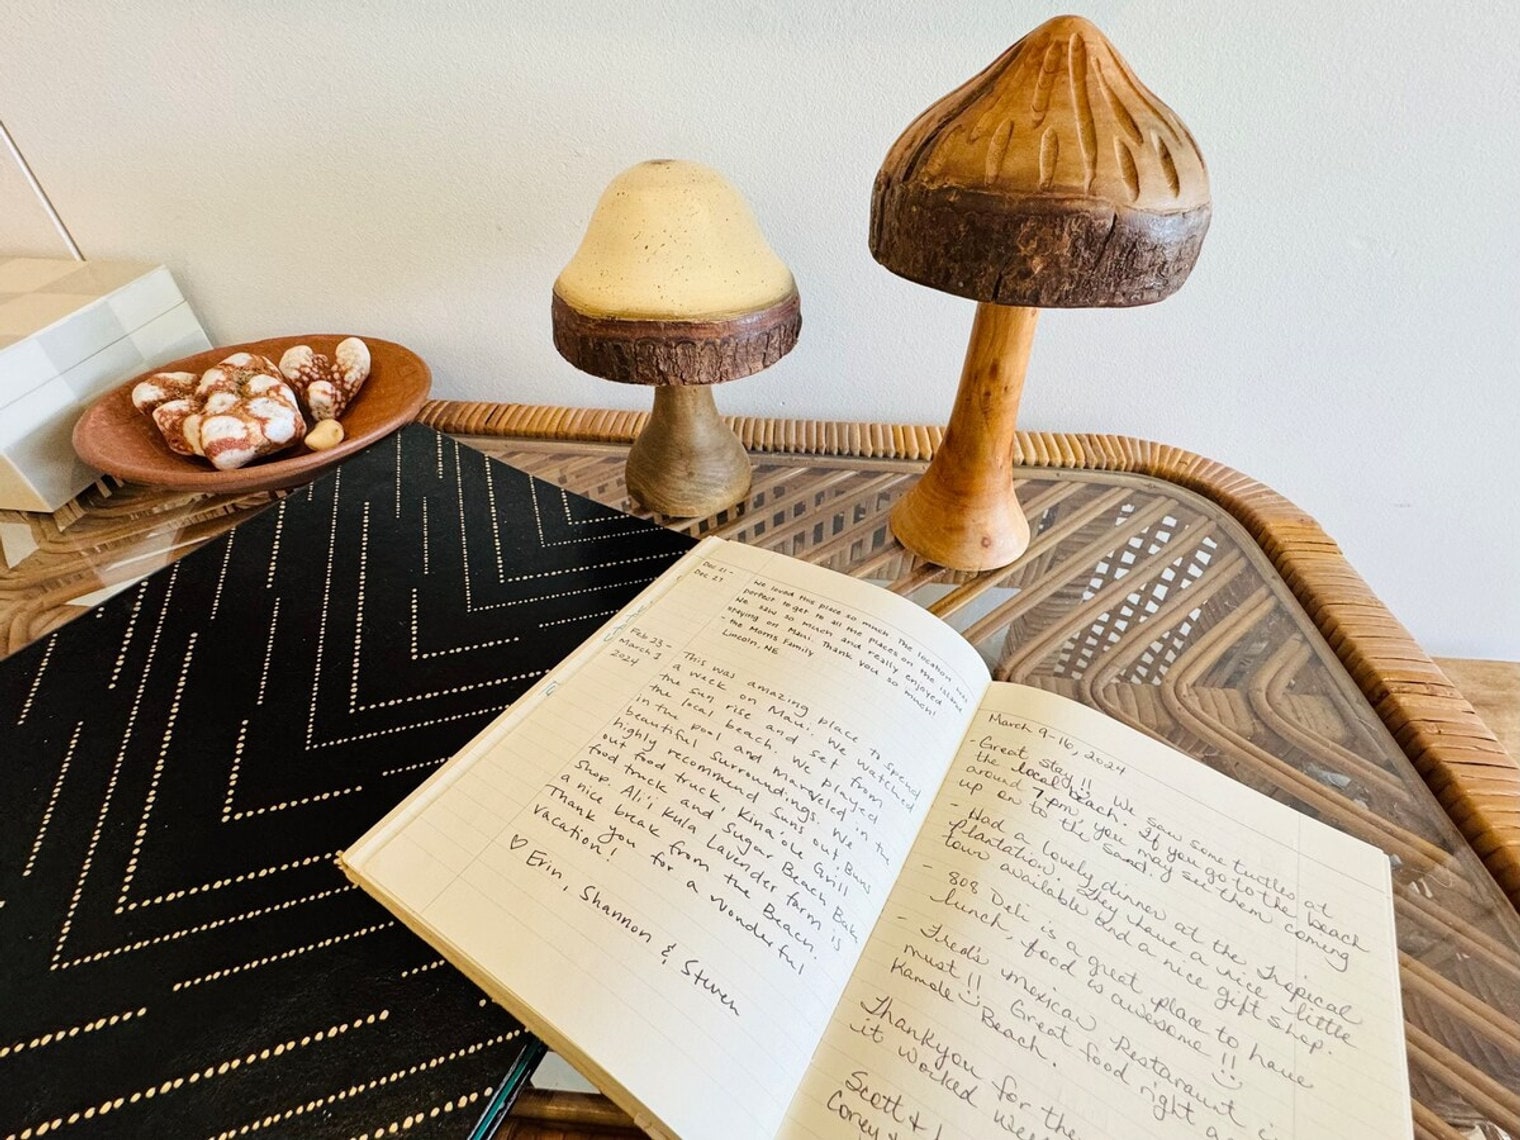 Dec 21 -
Dec 27
We loved this place so much. The location was
perfect to get to all the places on the island.
We saw so much and really enjoyed
staying on Maui. Thank you so much!
- the Morris Family
Lincoln, NE
Feb 23 -
March 1
2024
This was amazing place to spend
a week on Maui. We watched
the sun rise and set from
the local beach. We played
in the pool and marveled in the
beautiful surroundings. We
highly recommend Suns out Buns
out food truck, Kina'ole Grill
food truck and Sugar Beach Bake
Shop. Ali'i Kula Lavender farm is
a nice break from the Beach.
Thank you for a wonderful
vacation!
♡ Erin, Shannon & Steven
March 9-16, 2024
- Great stay!! We saw some turtles at
the local beach. If you go to the beach
around 7pm, you may see them coming
up on to the sand.
- Had a lovely dinner at the Tropical
plantation. They have a nice little
town available and a nice gift shop.
- 808 Deli is a great place to have
lunch, food is awesome!!
- Fred's mexican Restaraunt i
must!! Great food right a
Kamole Beach.
Thankyou for the
it worked
Scott +
Corey +